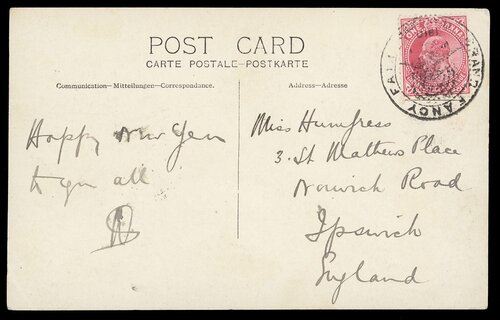 POST CARD
CARTE POSTALE-POSTKARTE
Communication-Mitteilungen-Correspondance.
Address-Adresse
ONE ANNA
FANCY FAIR
GRAND
Happy New Year
to you all
Miss Humfress
3. St Mathews Place
Norwich Road
Ipswich
England